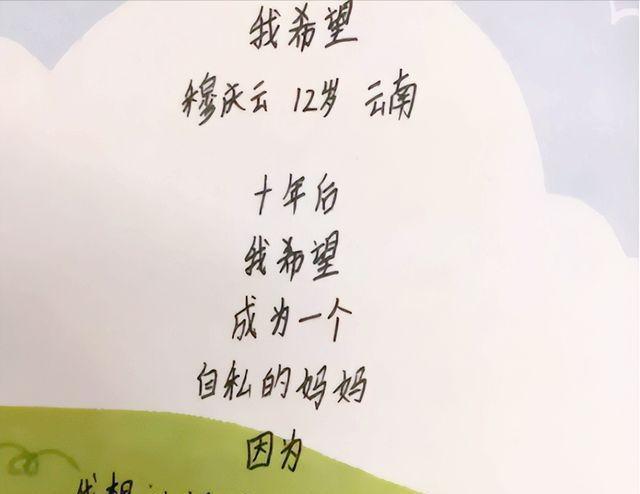 我希望
穆庆云 12岁 云南
十年后
我希望
成为一个
自私的妈妈
因为
我想